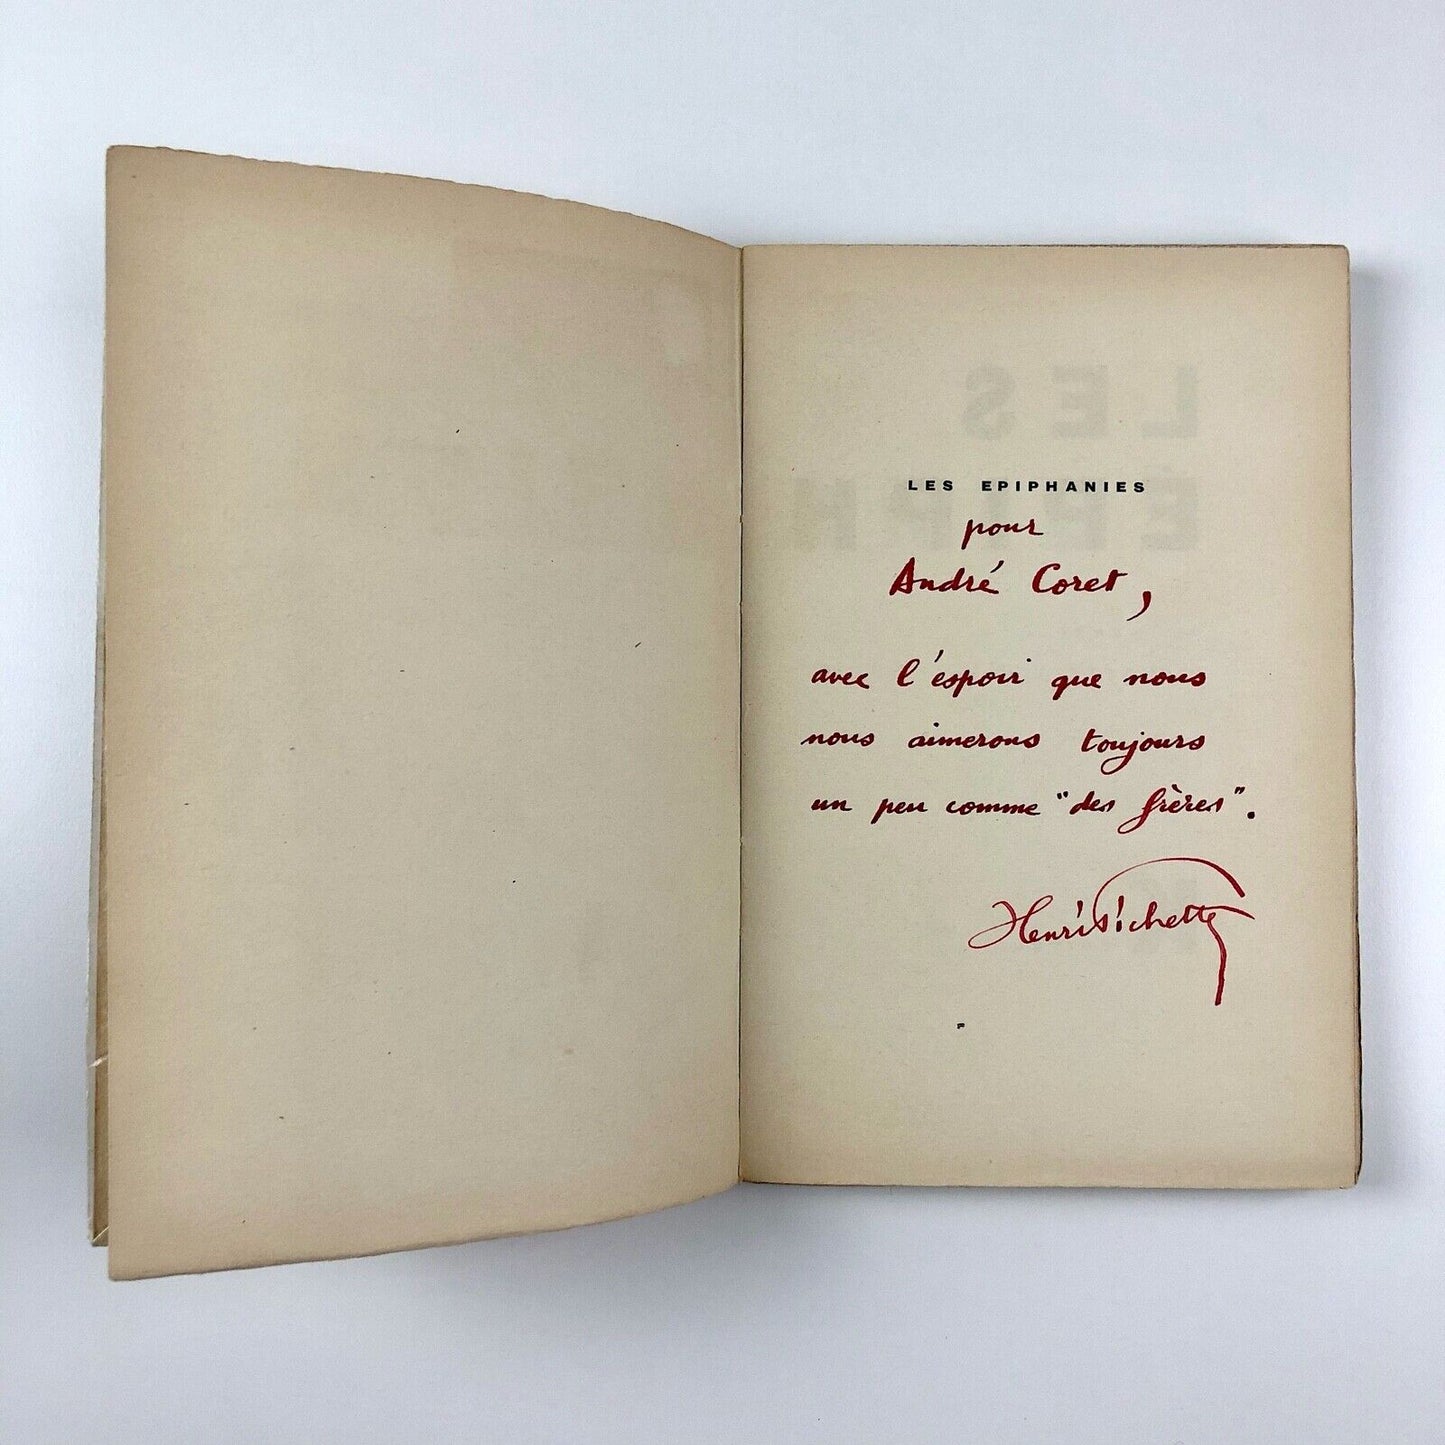 LES EPIPHANIES
pour
André Coret,
avec l'espoir que nous
nous aimerons toujours
un peu comme "des frères".
Henri Pichette